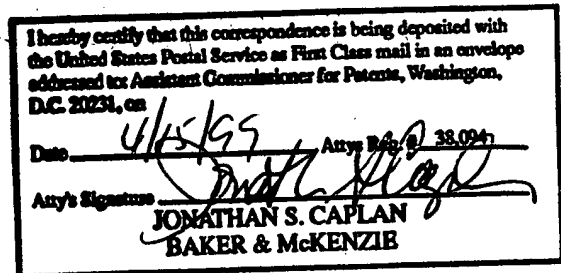 I hereby certify that this correspondence is being deposited with
the United States Postal Service as First Class mail in an envelope
addressed to: Assistant Commissioner for Patents, Washington,
D.C. 20231, on
Date 4/15/99 Attys Reg. # 38,094
Atty's Signature
JONATHAN S. CAPLAN
BAKER & McKENZIE